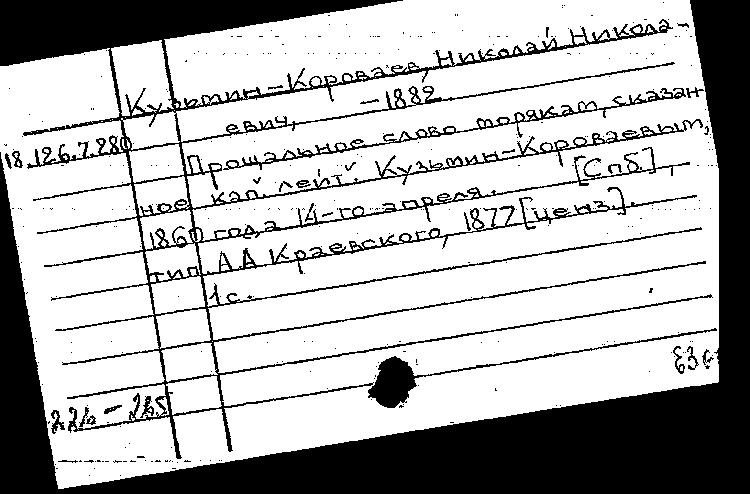 Кузьмин-Короваев, Николай Никола-
евич, -1882
18.126.7.280
Прощальное слово морякам, сказан
ное кап. лейт. Кузьмин-Короваевым,
1860 года 14-го апреля. [Спб],
тип. А.А Краевского, 1877 [ценз.].
1 с.